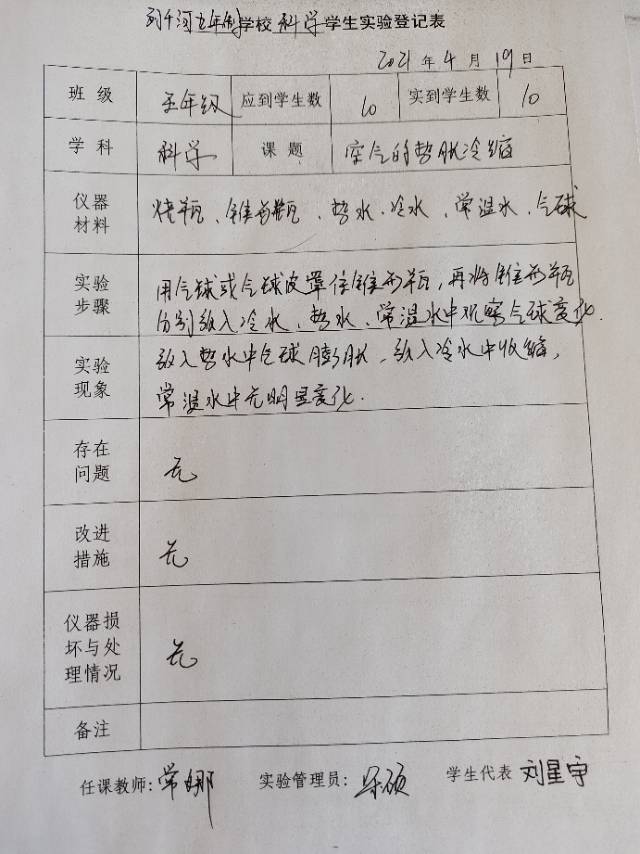 学校科学学生实验登记表
2021年4月19日
班级 五年级 应到学生数 10 实到学生数 10
学科 科学 课题 空气的热胀冷缩
仪器材料 烧瓶、锥形瓶、热水、冷水、常温水、气球
实验步骤 用气球或气球皮罩住锥形瓶，再将锥形瓶
分别放入冷水、热水、常温水中观察气球变化.
实验现象 放入热水中气球膨胀，放入冷水中收缩，
常温水中无明显变化.
存在问题 无
改进措施 无
仪器损坏与处理情况 无
备注
任课教师：常娜 实验管理员： 学生代表 刘星宇